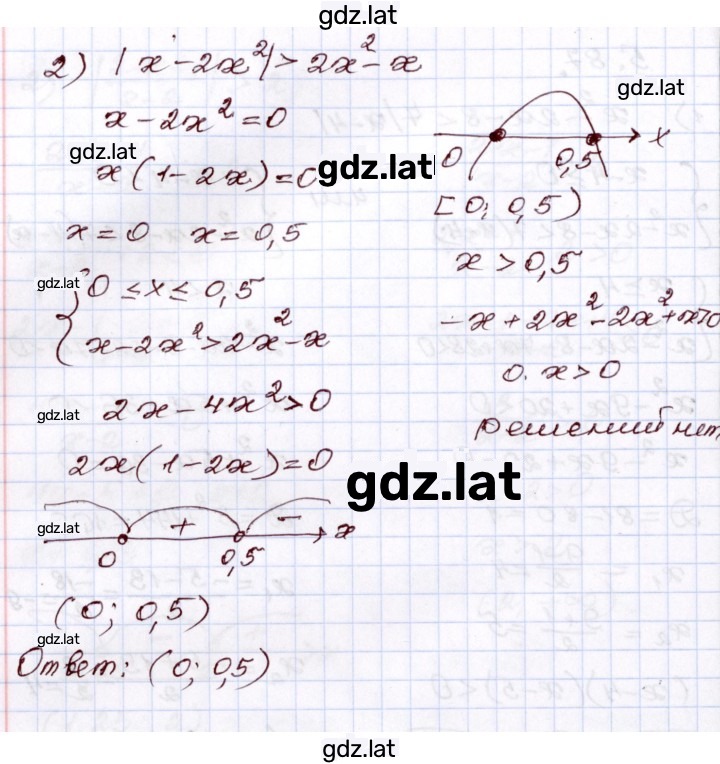 gdz.lat
2) |x - 2x²| > 2x² - x
x - 2x² = 0
gdz.lat
x(1 - 2x) = 0
x = 0 x = 0,5
gdz.lat
{ 0 ≤ x ≤ 0,5
x - 2x² > 2x² - x
gdz.lat
2x - 4x² > 0
2x(1 - 2x) = 0
gdz.lat
+ - x
0 0,5
(0; 0,5)
gdz.lat
Ответ: (0; 0,5)
gdz.lat
gdz.lat
x
0 0,5
gdz.lat
[0; 0,5)
x > 0,5
-x + 2x² - 2x² + x > 0
0. x > 0
решений нет
gdz.lat
gdz.lat